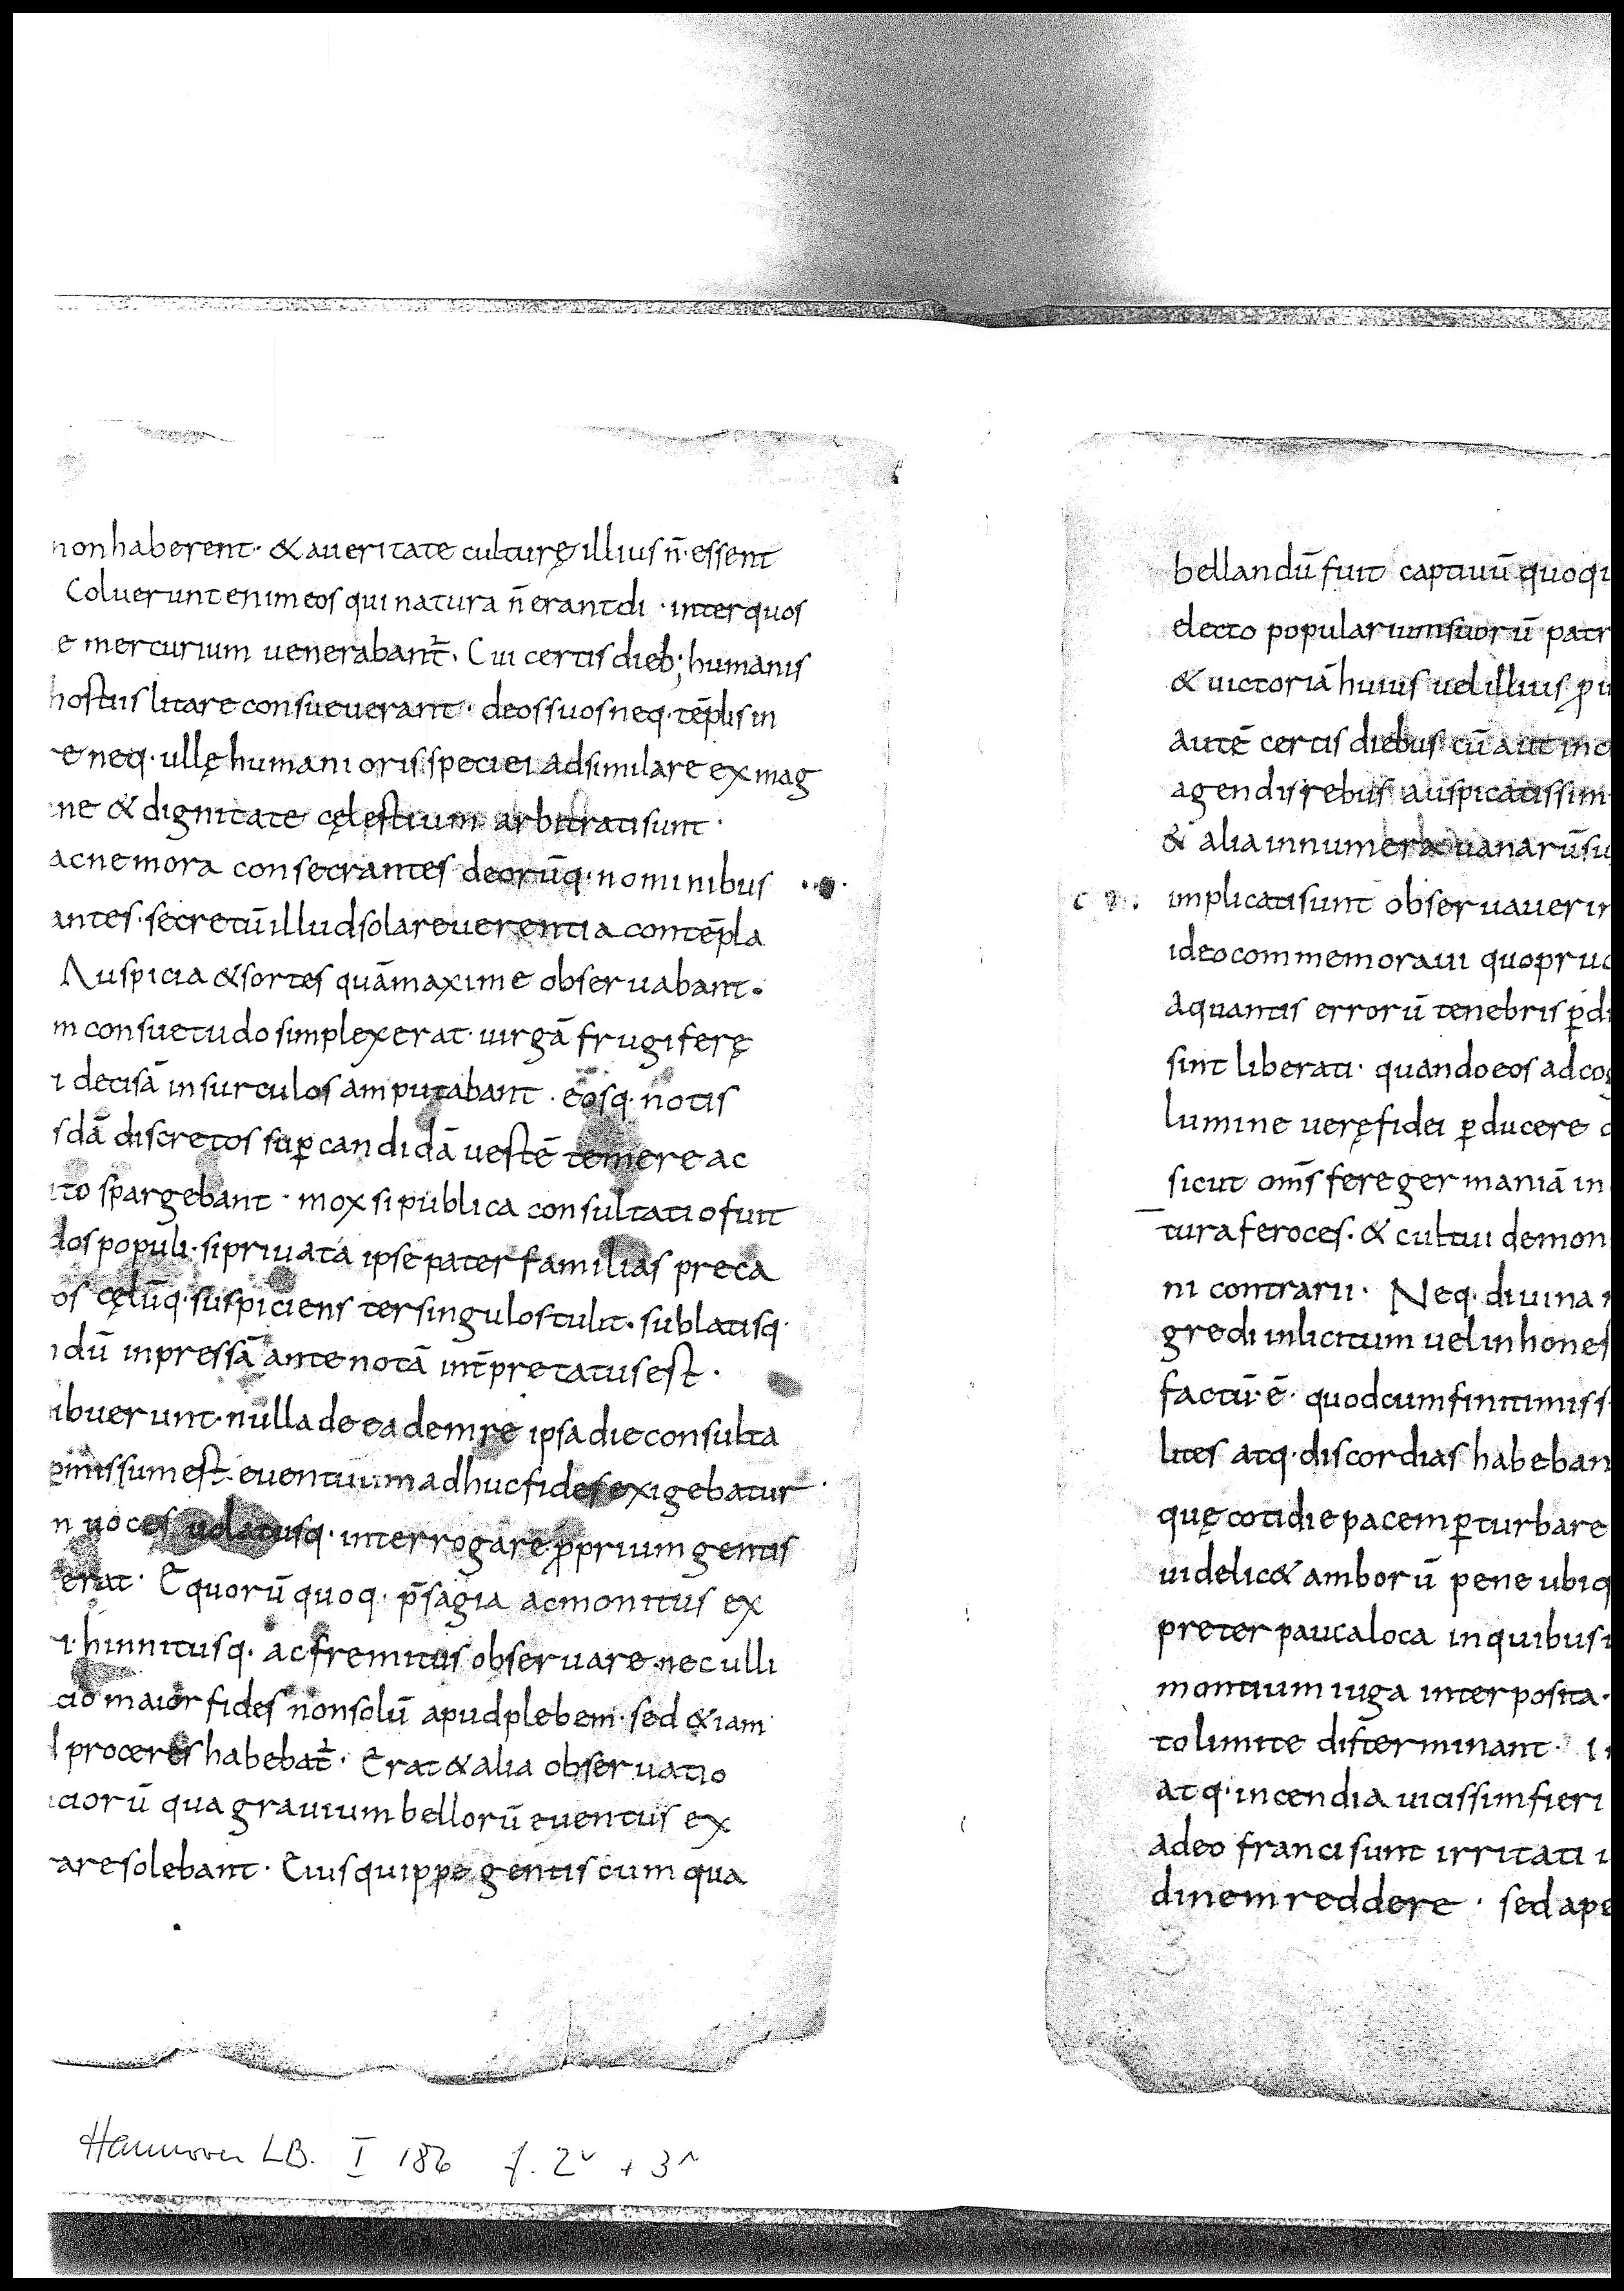 non haberent· & a ueritate culturę illius n̄ essent
Coluerunt enim eos qui natura n̄ erant di · inter quos
e mercurium uenerabant̄. Cui certis dieb; humanis
hostiis litare consueuerant· deos suos neq· tēplis in
e neq· ullę humani oris speciei adsimilare ex mag
ne & dignitate cęlestium arbitrati sunt·
ac nemora consecrantes deorūq· nominibus
antes· secretū illud sola reuerentia contēpla
Auspicia & sortes quā maxime obseruabant.
m consuetudo simplex erat· uirgā frugiferę
i decisā in surculos amputabant· eosq· notis
sdā discretos sup̄ candidā uestē temere ac
ito spargebant· mox si publica consultatio fuit
dos populi· si priuata ipse pater familias preca
os cęlūq· suspiciens ter singulos tulit. sublatisq·
dū inpressā ante notā int̄pretatus est·
ibuerunt· nulla de eadem re ipsa die consulta
missum est· euentuum adhuc fides exigebatur·
n uoces uolatusq· interrogare p̄prium gentis
erat· Equorū quoq· p̄sagia ac monitus ex
i· hinnitusq· ac fremitus obseruare· nec ulli
cio maior fides non solū apud plebem· sed &iam
proceres habebat̄· Erat & alia obseruatio
iciorū qua grauium bellorū euentus ex
are solebant· Eius quippe gentis cum qua
bellandū fuit captiuū quoqu
electo popularium suorū patr
& uictoriā huius uel illius p̄
autē certis diebus cū aut inc
agendis rebus auspicatissim
& alia innumera uanarū su
implicati sunt obseruauerin
ideo commemoraui quo pru
a quantis errorū tenebris p̄
sint liberati· quando eos ad cog
lumine uerę fidei p̄ducere
sicut om̄s fere germaniā in
tura feroces. & cultui demon
ni contrarii· Neq· diuina
gredi inlicitum uel inhones
factū· ē· quod cum finitimis
lites atq· discordias habeban
quę cotidie pacem p̄turbare
uidelic& amborū pene ubiq
preter pauca loca in quibus
montium iuga interposita·
to limite disterminant·
atq· incendia uicissim fieri
adeo franci sunt irritati
dinem reddere· sed ape
3
Hannover LB. I 186 f. 2v + 3r